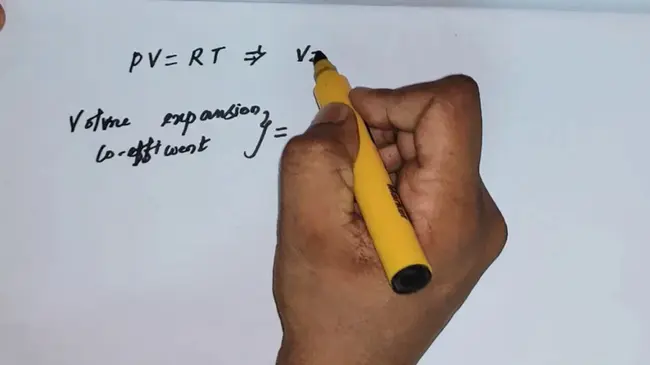 PV = RT ⇒ V=
Volume expansion } =
Co-efficient